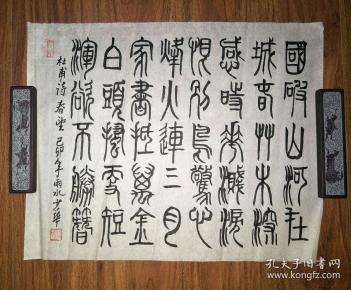 國破山河在
城春艸木深
感時花濺淚
恨別鳥驚心
烽火連三月
家書抵萬金
白頭搔更短
渾欲不勝簪
杜甫詩 春望 己卯年雨水
孔夫子旧书网
www.kongfz.com